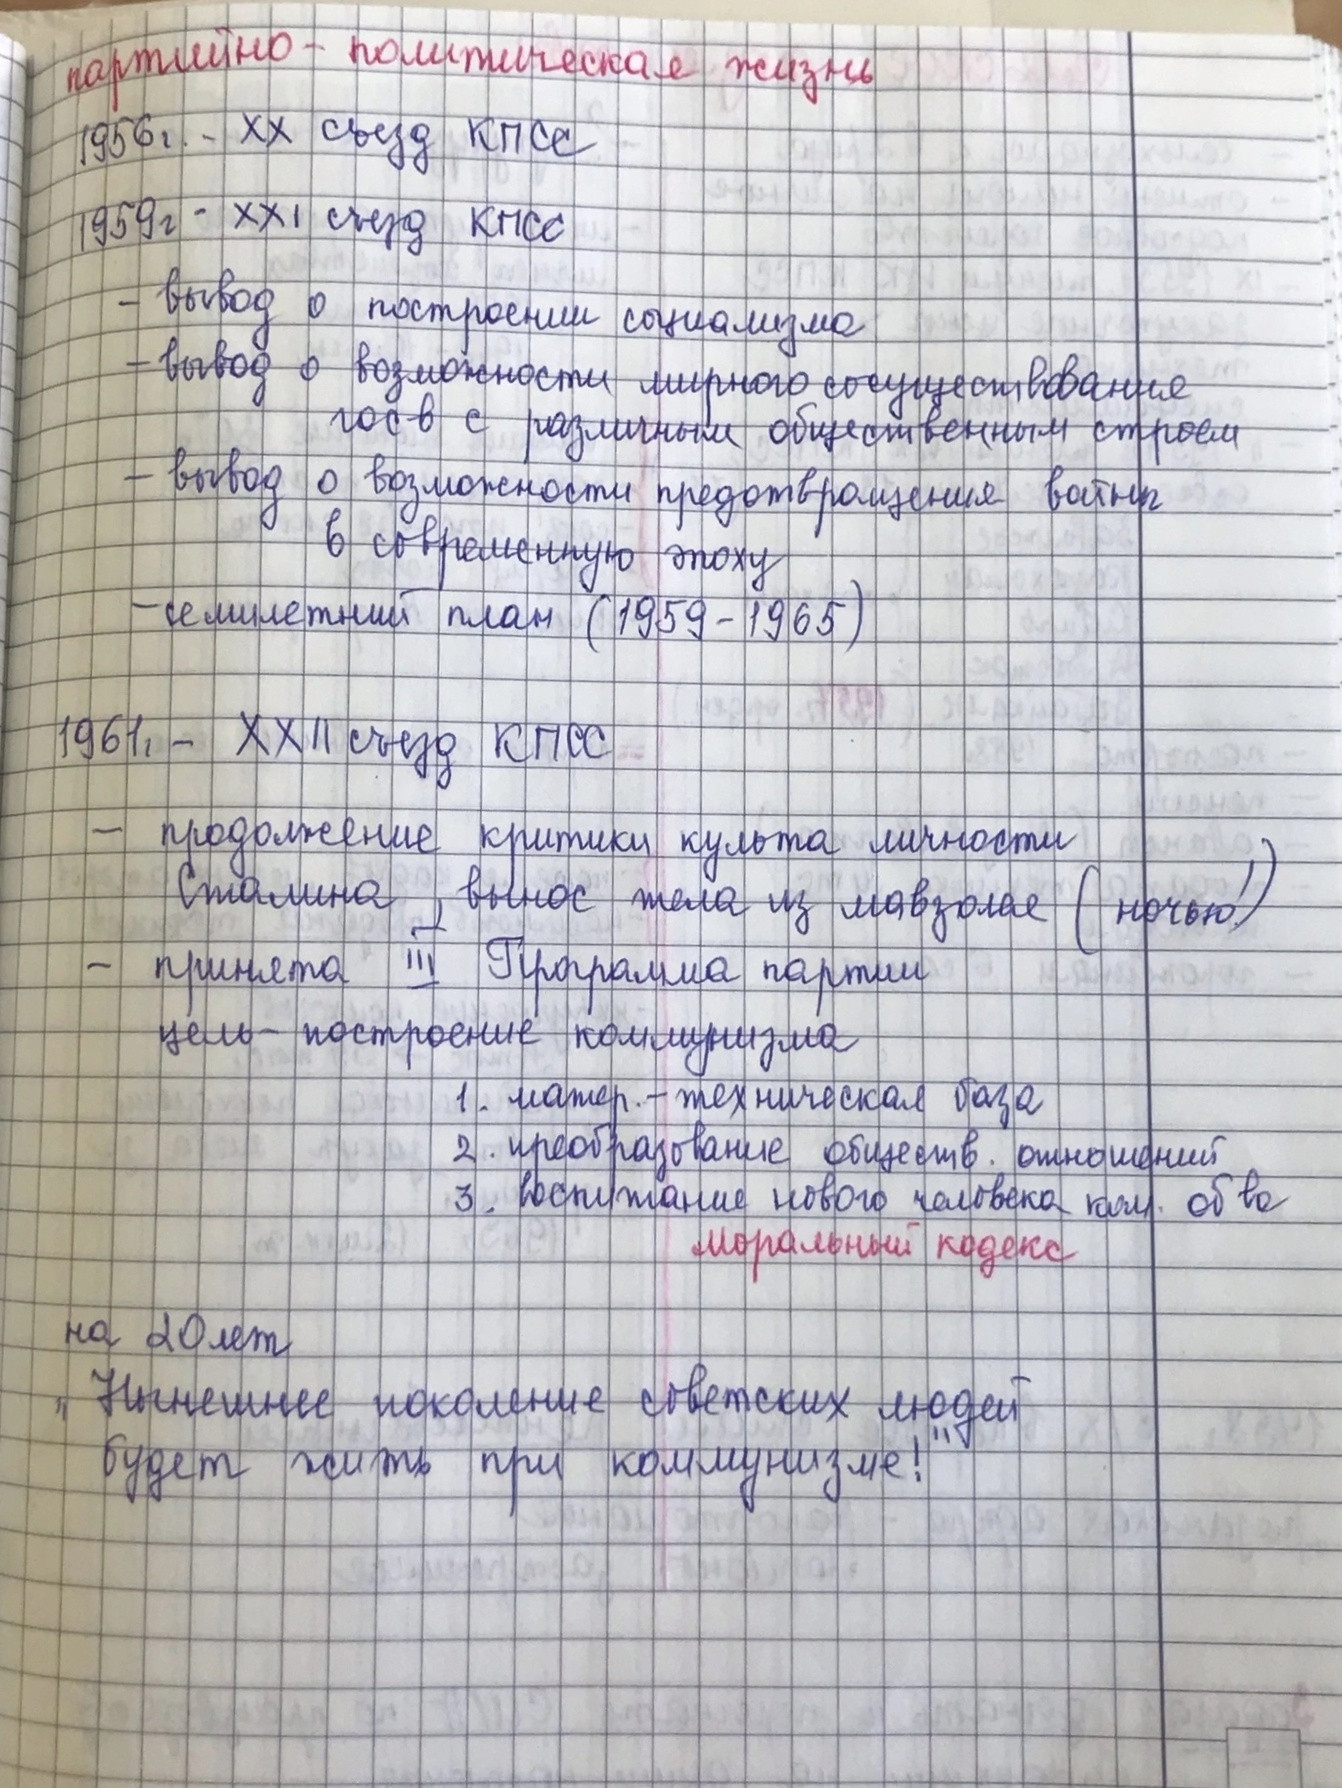 партийно - политическая жизнь
1956г. - XX съезд КПСС
1959г - XXI съезд КПСС
- вывод о построении социализма
- вывод о возможности мирного сосуществования
гос в с различным общественным строем
- вывод о возможности предотвращения войны
в современную эпоху
- семилетний план (1959 - 1965)
1961г. - XXII съезд КПСС
- продолжение критики культа личности
Сталина, вынос тела из мавзолея (ночью!)
- принята III Программа партии
цель - построение коммунизма
1. матер. - техническая база
2. преобразование обществ. отношений
3. воспитание нового человека ком. об ва
Моральный кодекс
на 20 лет
„Нынешнее поколение советских людей
будет жить при коммунизме!"